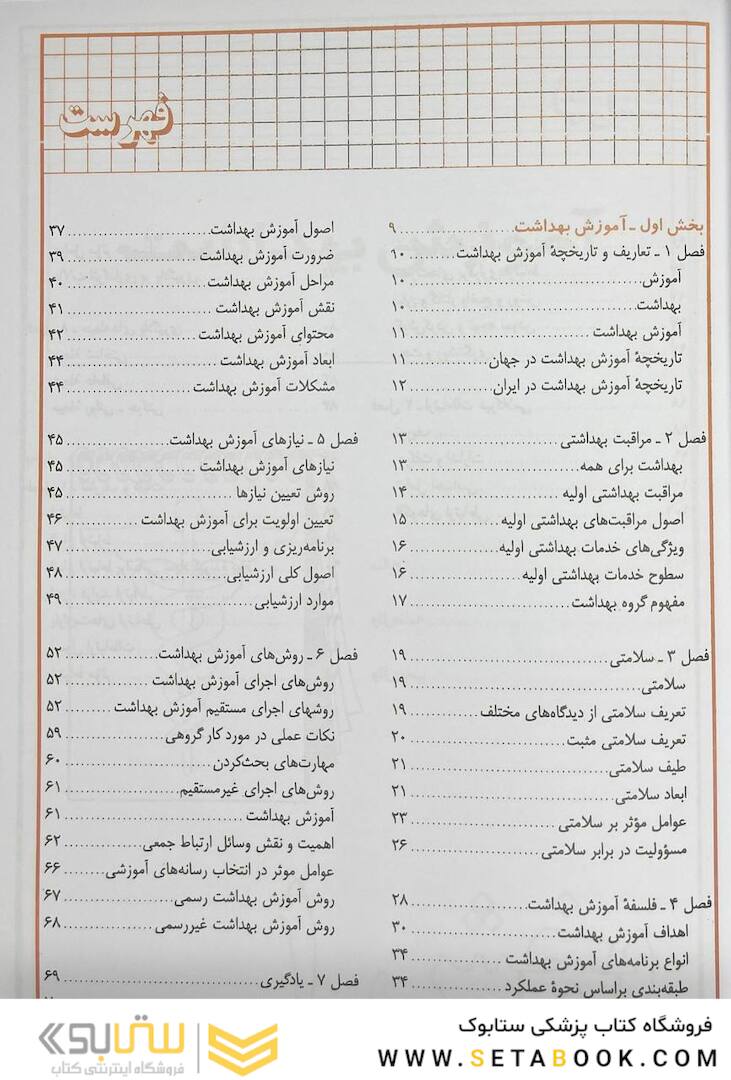 فهرست
بخش اول ـ آموزش بهداشت ۹
فصل ۱ ـ تعاریف و تاریخچهٔ آموزش بهداشت ۱۰
آموزش ۱۰
بهداشت ۱۰
آموزش بهداشت ۱۱
تاریخچهٔ آموزش بهداشت در جهان ۱۱
تاریخچهٔ آموزش بهداشت در ایران ۱۲
فصل ۲ ـ مراقبت بهداشتی ۱۳
بهداشت برای همه ۱۳
مراقبت بهداشتی اولیه ۱۴
اصول مراقبت‌های بهداشتی اولیه ۱۵
ویژگی‌های خدمات بهداشتی اولیه ۱۶
سطوح خدمات بهداشتی اولیه ۱۶
مفهوم گروه بهداشت ۱۷
فصل ۳ ـ سلامتی ۱۹
سلامتی ۱۹
تعریف سلامتی از دیدگاه‌های مختلف ۱۹
تعریف سلامتی مثبت ۲۰
طیف سلامتی ۲۱
ابعاد سلامتی ۲۱
عوامل مؤثر بر سلامتی ۲۳
مسؤولیت در برابر سلامتی ۲۶
فصل ۴ ـ فلسفهٔ آموزش بهداشت ۲۸
اهداف آموزش بهداشت ۳۰
انواع برنامه‌های آموزش بهداشت ۳۴
طبقه‌بندی براساس نحوهٔ عملکرد ۳۴
اصول آموزش بهداشت ۳۷
ضرورت آموزش بهداشت ۳۹
مراحل آموزش بهداشت ۴۰
نقش آموزش بهداشت ۴۱
محتوای آموزش بهداشت ۴۲
ابعاد آموزش بهداشت ۴۴
مشکلات آموزش بهداشت ۴۴
فصل ۵ ـ نیازهای آموزش بهداشت ۴۵
نیازهای آموزش بهداشت ۴۵
روش تعیین نیازها ۴۵
تعیین اولویت برای آموزش بهداشت ۴۶
برنامه‌ریزی و ارزشیابی ۴۷
اصول کلی ارزشیابی ۴۸
موارد ارزشیابی ۴۹
فصل ۶ ـ روش‌های آموزش بهداشت ۵۲
روش‌های اجرای آموزش بهداشت ۵۲
روشهای اجرای مستقیم آموزش بهداشت ۵۲
نکات عملی در مورد کار گروهی ۵۹
مهارت‌های بحث‌کردن ۶۰
روش‌های اجرای غیرمستقیم ۶۱
آموزش بهداشت ۶۱
اهمیت و نقش وسائل ارتباط جمعی ۶۲
عوامل موثر در انتخاب رسانه‌های آموزشی ۶۶
روش آموزش بهداشت رسمی ۶۷
روش آموزش بهداشت غیررسمی ۶۸
فصل ۷ ـ یادگیری ۶۹
فروشگاه کتاب پزشکی ستابوک
WWW.SETABOOK.COM
ستابوک
فروشگاه اینترنتی کتاب